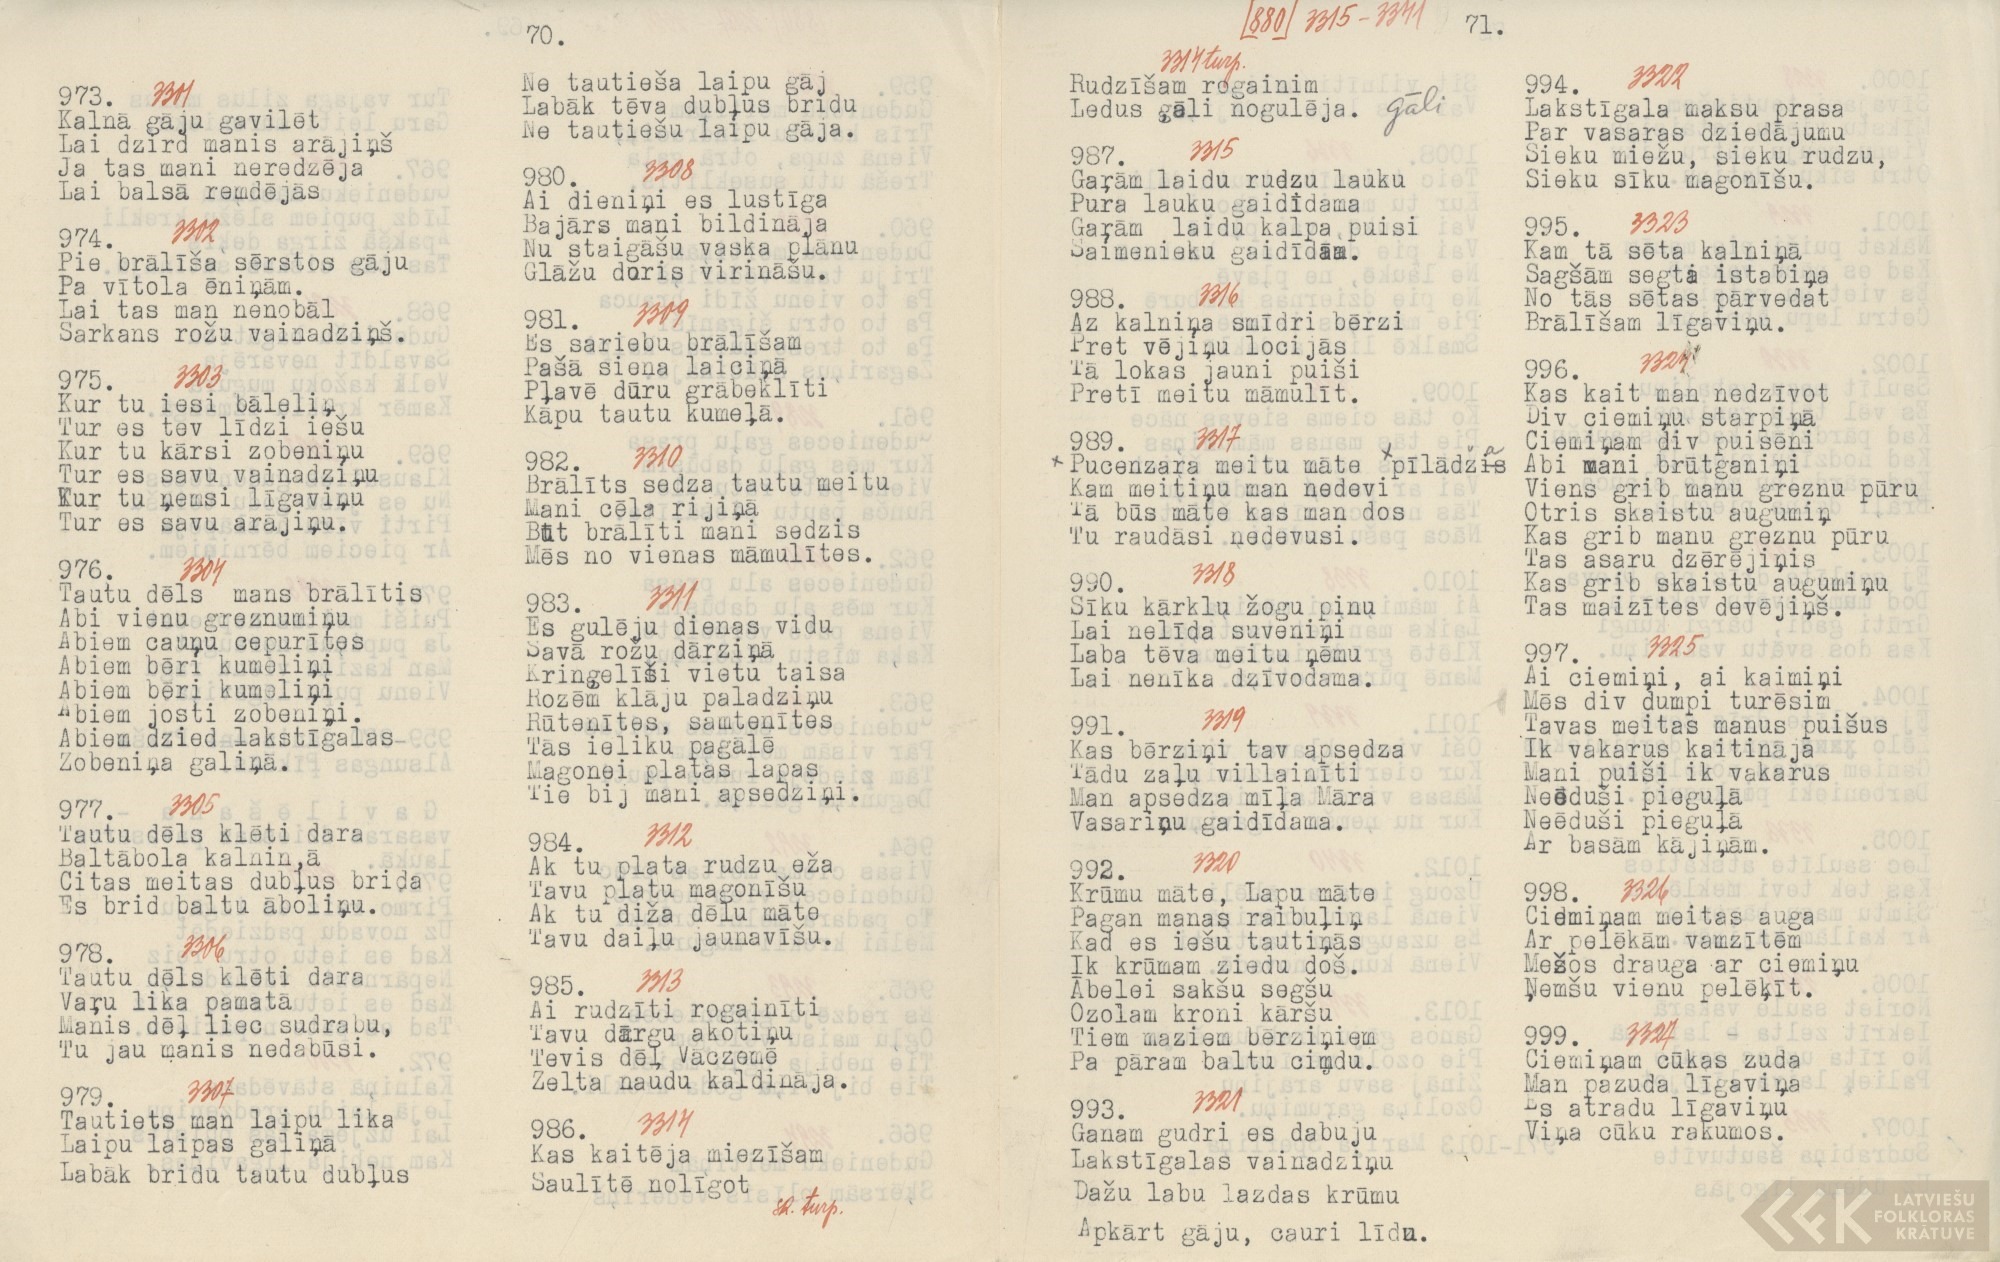 70.
973. 3301
Kalnā gāju gavilēt
Lai dzird manis arājiņš
Ja tas mani neredzēja
Lai balsā remdējās
974. 3302
Pie brālīša sērstos gāju
Pa vītola ēniņām.
Lai tas man nenobāl
Sarkans rožu vainadziņš.
975. 3303
Kur tu iesi bāleliņ
Tur es tev līdzi iešu
Kur tu kārsi zobeniņu
Tur es savu vainadziņu
Kur tu ņemsi līgaviņu
Tur es savu arājiņu.
976. 3304
Tautu dēls mans brālītis
Abi vienu greznumiņu
Abiem cauņu cepurītes
Abiem bēri kumeliņi
Abiem bēri kumeliņi
Abiem josti zobeniņi.
Abiem dzied lakstīgalas
Zobeniņa galiņā.
977. 3305
Tautu dēls klēti dara
Baltābola kalnin,ā
Citas meitas dubļus brida
Es brid baltu āboliņu.
978. 3306
Tautu dēls klēti dara
Vaŗu lika pamatā
Manis dēļ liec sudrabu,
Tu jau manis nedabūsi.
979. 3307
Tautiets man laipu lika
Laipu laipas galiņā
Labāk bridu tautu dubļus
Ne tautieša laipu gāj
Labāk tēva dubļus bridu
Ne tautiešu laipu gāja.
980. 3308
Ai dieniņi es lustīga
Bajārs mani bildināja
Nu staigāšu vaska plānu
Glāžu doris virināšu.
981. 3309
Es sariebu brālīšam
Pašā siena laiciņā
Pļavē dūru grābeklīti
Kāpu tautu kumeļā.
982. 3310
Brālīts sedza tautu meitu
Mani cēla rijiņā
But brālīti mani sedzis
Mēs no vienas māmulītes.
983. 3311
Es gulēju dienas vidu
Savā rožu dārziņā
Kringelīši vietu taisa
Rozēm klāju paladziņu
Rūtenītes, samtenītes
Tās ieliku pagālē
Magonei platas lapas
Tie bij mani apsedziņi.
984. 3312
Ak tu plata rudzu eža
Tavu platu magonīšu
Ak tu diža dēlu māte
Tavu daiļu jaunavīšu.
985. 3313
Ai rudzīti rogainīti
Tavu dārgu akotiņu
Tevis dēļ Vāczemē
Zelta naudu kaldināja.
986. 3314
Kas kaitēja miezīšam
Saulītē nolīgot
sk. turp.
[880] 3315 - 3341 71.
3314 turp.
Rudzīšam rogainim
Ledus gāli nogulēja. gāli
987. 3315
Gaŗām laidu rudzu lauku
Pura lauku gaidīdama
Gaŗām laidu kalpa puisi
Saimenieku gaidīdām.
988. 3316
Az kalniņa smīdri bērzi
Pret vējiņu locijās
Tā lokas jauni puiši
Pretī meitu māmulīt.
989. 3317
× Pucenzara meitu māte × pīlādžis a
Kam meitiņu man nedevi
Tā būs māte kas man dos
Tu raudāsi nedevusi.
990. 3318
Sīku kārklu žogu pinu
Lai nelīda suveniņi
Laba tēva meitu ņēmu
Lai nenīka dzīvodama.
991. 3319
Kas bērziņi tav apsedza
Tādu zaļu villainīti
Man apsedza mīļa Māra
Vasariņu gaidīdama.
992. 3320
Krūmu māte, Lapu māte
Pagan manas raibuļiņ
Kad es iešu tautiņās
Ik krūmam ziedu došu.
Ābelei sakšu segšu
Ozolam kroni kāršu
Tiem maziem bērziņiem
Pa pāram baltu cimdu.
993. 3321
Ganam gudri es dabuju
Lakstīgalas vainadziņu
Dažu labu lazdas krūmu
Apkārt gāju, cauri līdu.
994. 3322
Lakstīgala maksu prasa
Par vasaras dziedājumu
Sieku miežu, sieku rudzu,
Sieku sīku magonīšu.
995. 3323
Kam tā sēta kalniņā
Sagšām segta istabiņa
No tās sētas pārvedat
Brālīšam līgaviņu.
996. 3324
Kas kait man nedzīvot
Div ciemiņu starpiņā
Ciemiņam div puisēni
Abi mani brūtganiņi
Viens grib manu greznu pūru
Otris skaistu augumiņ
Kas grib manu greznu pūru
Tas asaru dzērējiņis
Kas grib skaistu augumiņu
Tas maizītes devējiņš.
997. 3325
Ai ciemiņi, ai kaimiņi
Mēs div dumpi turēsim
Tavas meitas manus puišus
Ik vakarus kaitināja
Mani puiši ik vakarus
Neēduši pieguļā
Neēduši pieguļā
Ar basām kājiņām.
998. 3326
Ciemiņam meitas auga
Ar pelēkām vamzītēm
Mešos drauga ar ciemiņu
Ņemšu vienu pelēķīt.
999. 3327
Ciemiņam cūkas zuda
Man pazuda līgaviņa
Es atradu līgaviņu
Viņa cūku rakumos.
LATVIEŠU
FOLKLORAS
KRĀTUVE